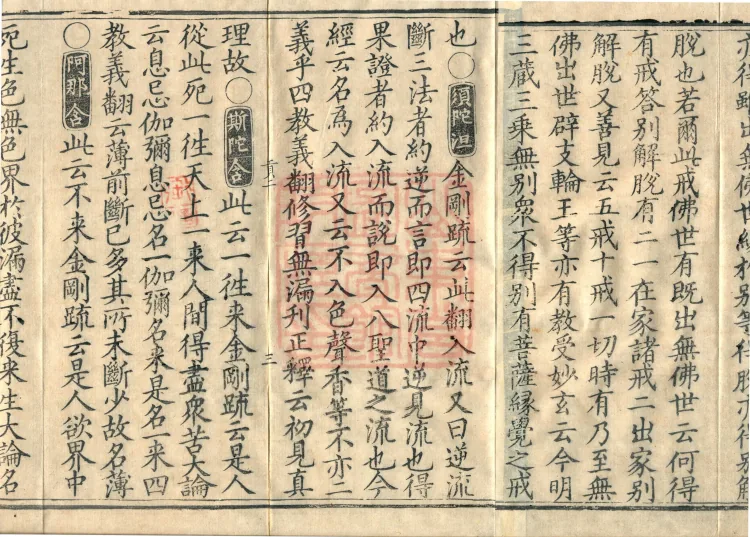 脫也若爾此戒佛世有既出無佛世云何得
有戒答別解脫有二一在家諸戒二出家別
解脫又善見云五戒十戒一切時有乃至無
佛出世辟支輪王等亦有教受妙玄云今明
三藏三乘無別眾不得別有菩薩緣覺之戒
也〇須陀洹金剛疏云此翻入流又曰逆流
斷三法者約逆而言即四流中逆見流也得
果證者約入流而說即入八聖道之流也今
經云名為入流又云不入色聲香等不亦二
義乎四教義翻修習無漏刊正釋云初見真
貢二 三
理故〇斯陀含此云一往来金剛疏云是人
從此死一往天上一来人間得盡衆苦大論
云息忌伽彌息忌名一伽彌名来是名一来四
教義翻云薄前斷已多其所未斷少故名薄
〇阿那含此云不来金剛疏云是人欲界中
死生色無色界於彼漏盡不復来生大論名